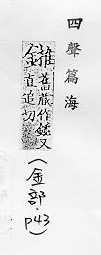 四聲篇海
舊藏作鎚又
直追切
(金部.
p43)